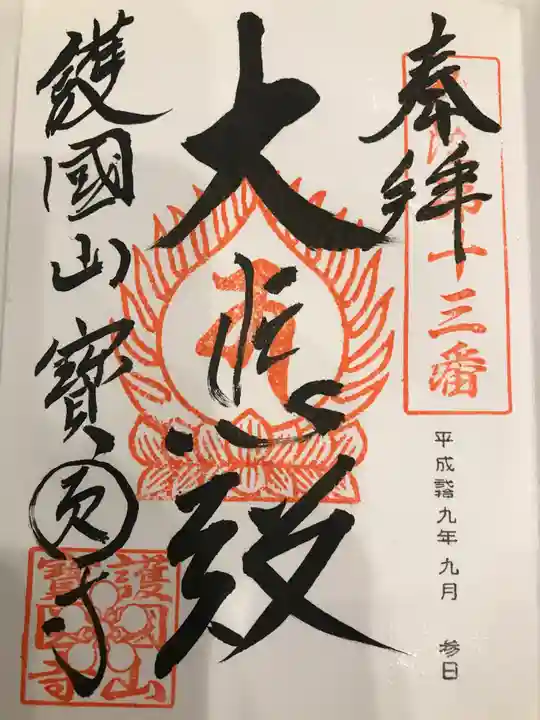 奉拜
十三番
平成 九年 九月 参日
大悲殿
護國山 寶圓寺
護國山
寶 寺